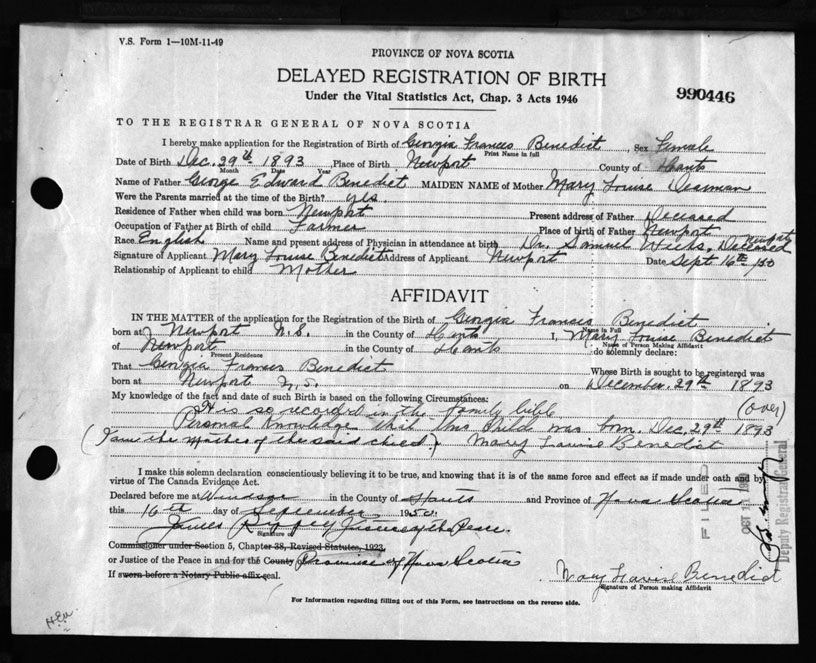 V.S. Form 1—10M-11-49
PROVINCE OF NOVA SCOTIA
DELAYED REGISTRATION OF BIRTH
990446
Under the Vital Statistics Act, Chap. 3 Acts 1946
TO THE REGISTRAR GENERAL OF NOVA SCOTIA
I hereby make application for the Registration of Birth of Georgia Frances Benedict, Sex Female
Print Name in full
Date of Birth Dec. 29th 1893 Place of Birth Newport County of Hants
Month Date Year
Name of Father George Edward Benedict MAIDEN NAME of Mother Mary Louise
Were the Parents married at the time of the Birth? yes.
Residence of Father when child was born Newport Present address of Father Deceased
Occupation of Father at Birth of child Farmer Place of birth of Father Newport
Race English Name and present address of Physician in attendance at birth Dr. Samuel Weeks, Deceased Newport
Signature of Applicant Mary Louise Benedict Address of Applicant Newport Date Sept 16th /50
Relationship of Applicant to child Mother
AFFIDAVIT
IN THE MATTER of the application for the Registration of the Birth of Georgia Frances Benedict
Name in Full
born at Newport N.S. in the County of Hants I, Mary Louise Benedict
Name of Person Making Affidavit
of Newport in the County of Hants do solemnly declare:
Present Residence
That Georgia Frances Benedict Whose Birth is sought to be registered was
born at Newport N.S. on December. 29th 1893
My knowledge of the fact and date of such Birth is based on the following Circumstances:
It is so recorded in the family bible (over)
Personal Knowledge that this child was born. Dec. 29th 1893
(I am the mother of the said child.) Mary Louise Benedict
I make this solemn declaration conscientiously believing it to be true, and knowing that it is of the same force and effect as if made under oath and by
virtue of The Canada Evidence Act.
Declared before me at Windsor in the County of Hants and Province of Nova Scotia
this 16th day of September 1950.
James Justice of the Peace.
Signature of
Commissioner under Section 5, Chapter 38, Revised Statutes, 1923
or Justice of the Peace in and for the County Province of Nova Scotia
If sworn before a Notary Public affix seal.
Mary Louise Benedict
Signature of Person making Affidavit
For Information regarding filling out of this Form, see instructions on the reverse side.
FILED
OCT
Deputy Registrar General